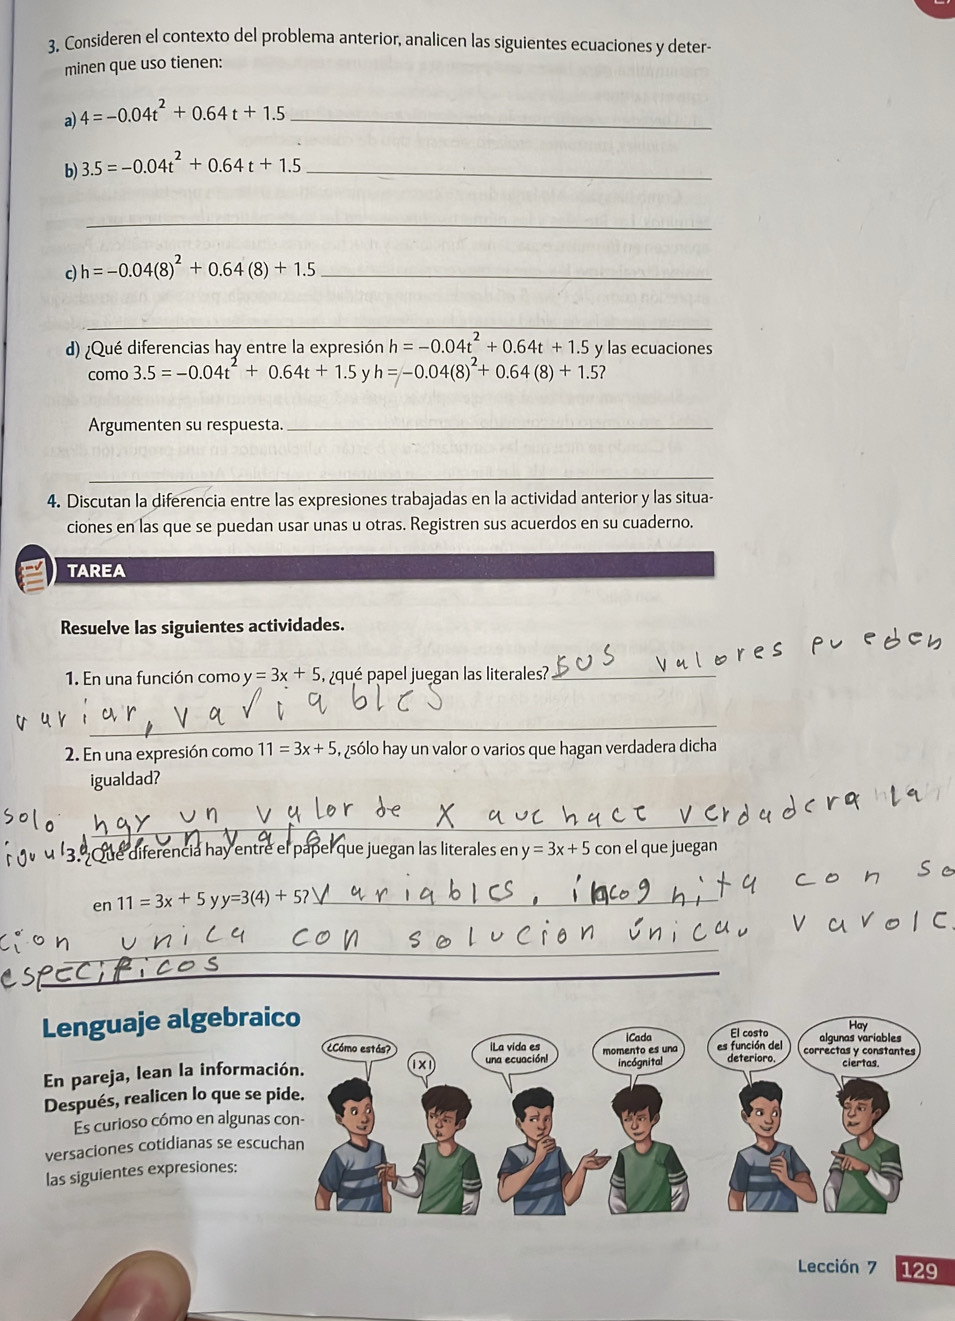 3. Consideren el contexto del problema anterior, analicen las siguientes ecuaciones y deter-
minen que uso tienen:
a) 4 = −0.04t² + 0.64 t + 1.5
b) 3.5 = −0.04t² + 0.64 t + 1.5
c) h = −0.04(8)² + 0.64 (8) + 1.5
d) ¿Qué diferencias hay entre la expresión h = −0.04t² + 0.64t + 1.5 y las ecuaciones
como 3.5 = −0.04t² + 0.64t + 1.5 y h = −0.04(8)² + 0.64 (8) + 1.5?
Argumenten su respuesta.
4. Discutan la diferencia entre las expresiones trabajadas en la actividad anterior y las situa-
ciones en las que se puedan usar unas u otras. Registren sus acuerdos en su cuaderno.
TAREA
Resuelve las siguientes actividades.
1. En una función como y = 3x + 5, ¿qué papel juegan las literales? sus valores pueden
variar, variables
2. En una expresión como 11 = 3x + 5, ¿sólo hay un valor o varios que hagan verdadera dicha
igualdad?
solo hay un valor de x que hace verdadera la
3. ¿Qué diferencia hay entre el papel que juegan las literales en y = 3x + 5 con el que juegan
en 11 = 3x + 5 y y=3(4) + 5? variables, incognita con so
cion unica con solucion única,
especificos
Lenguaje algebraico
En pareja, lean la información.
Después, realicen lo que se pide.
Es curioso cómo en algunas con-
versaciones cotidianas se escuchan
las siguientes expresiones:
¿Cómo estás?
¡X!
¡La vida es
una ecuación!
¡Cada
momento es una
incógnita!
El costo
es función del
deterioro.
Hay
algunas variables
correctas y constantes
ciertas.
Lección 7 129